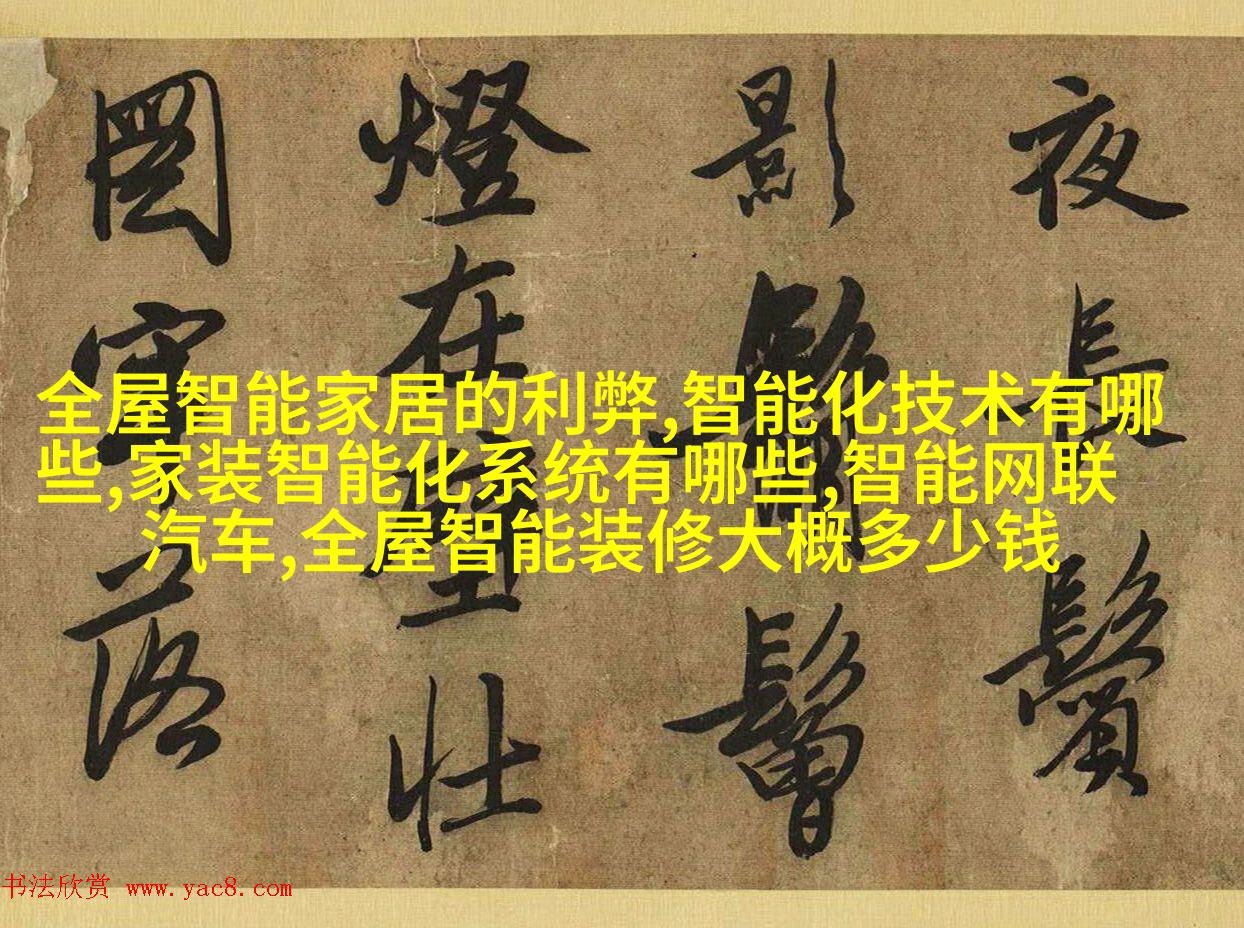 夜長鬢
影鬙
燈在壁壮
圖落
全屋智能家居的利弊,智能化技术有哪
些,家装智能化系统有哪些,智能网联
汽车,全屋智能装修大概多少钱
书法欣赏 www.yac8.com